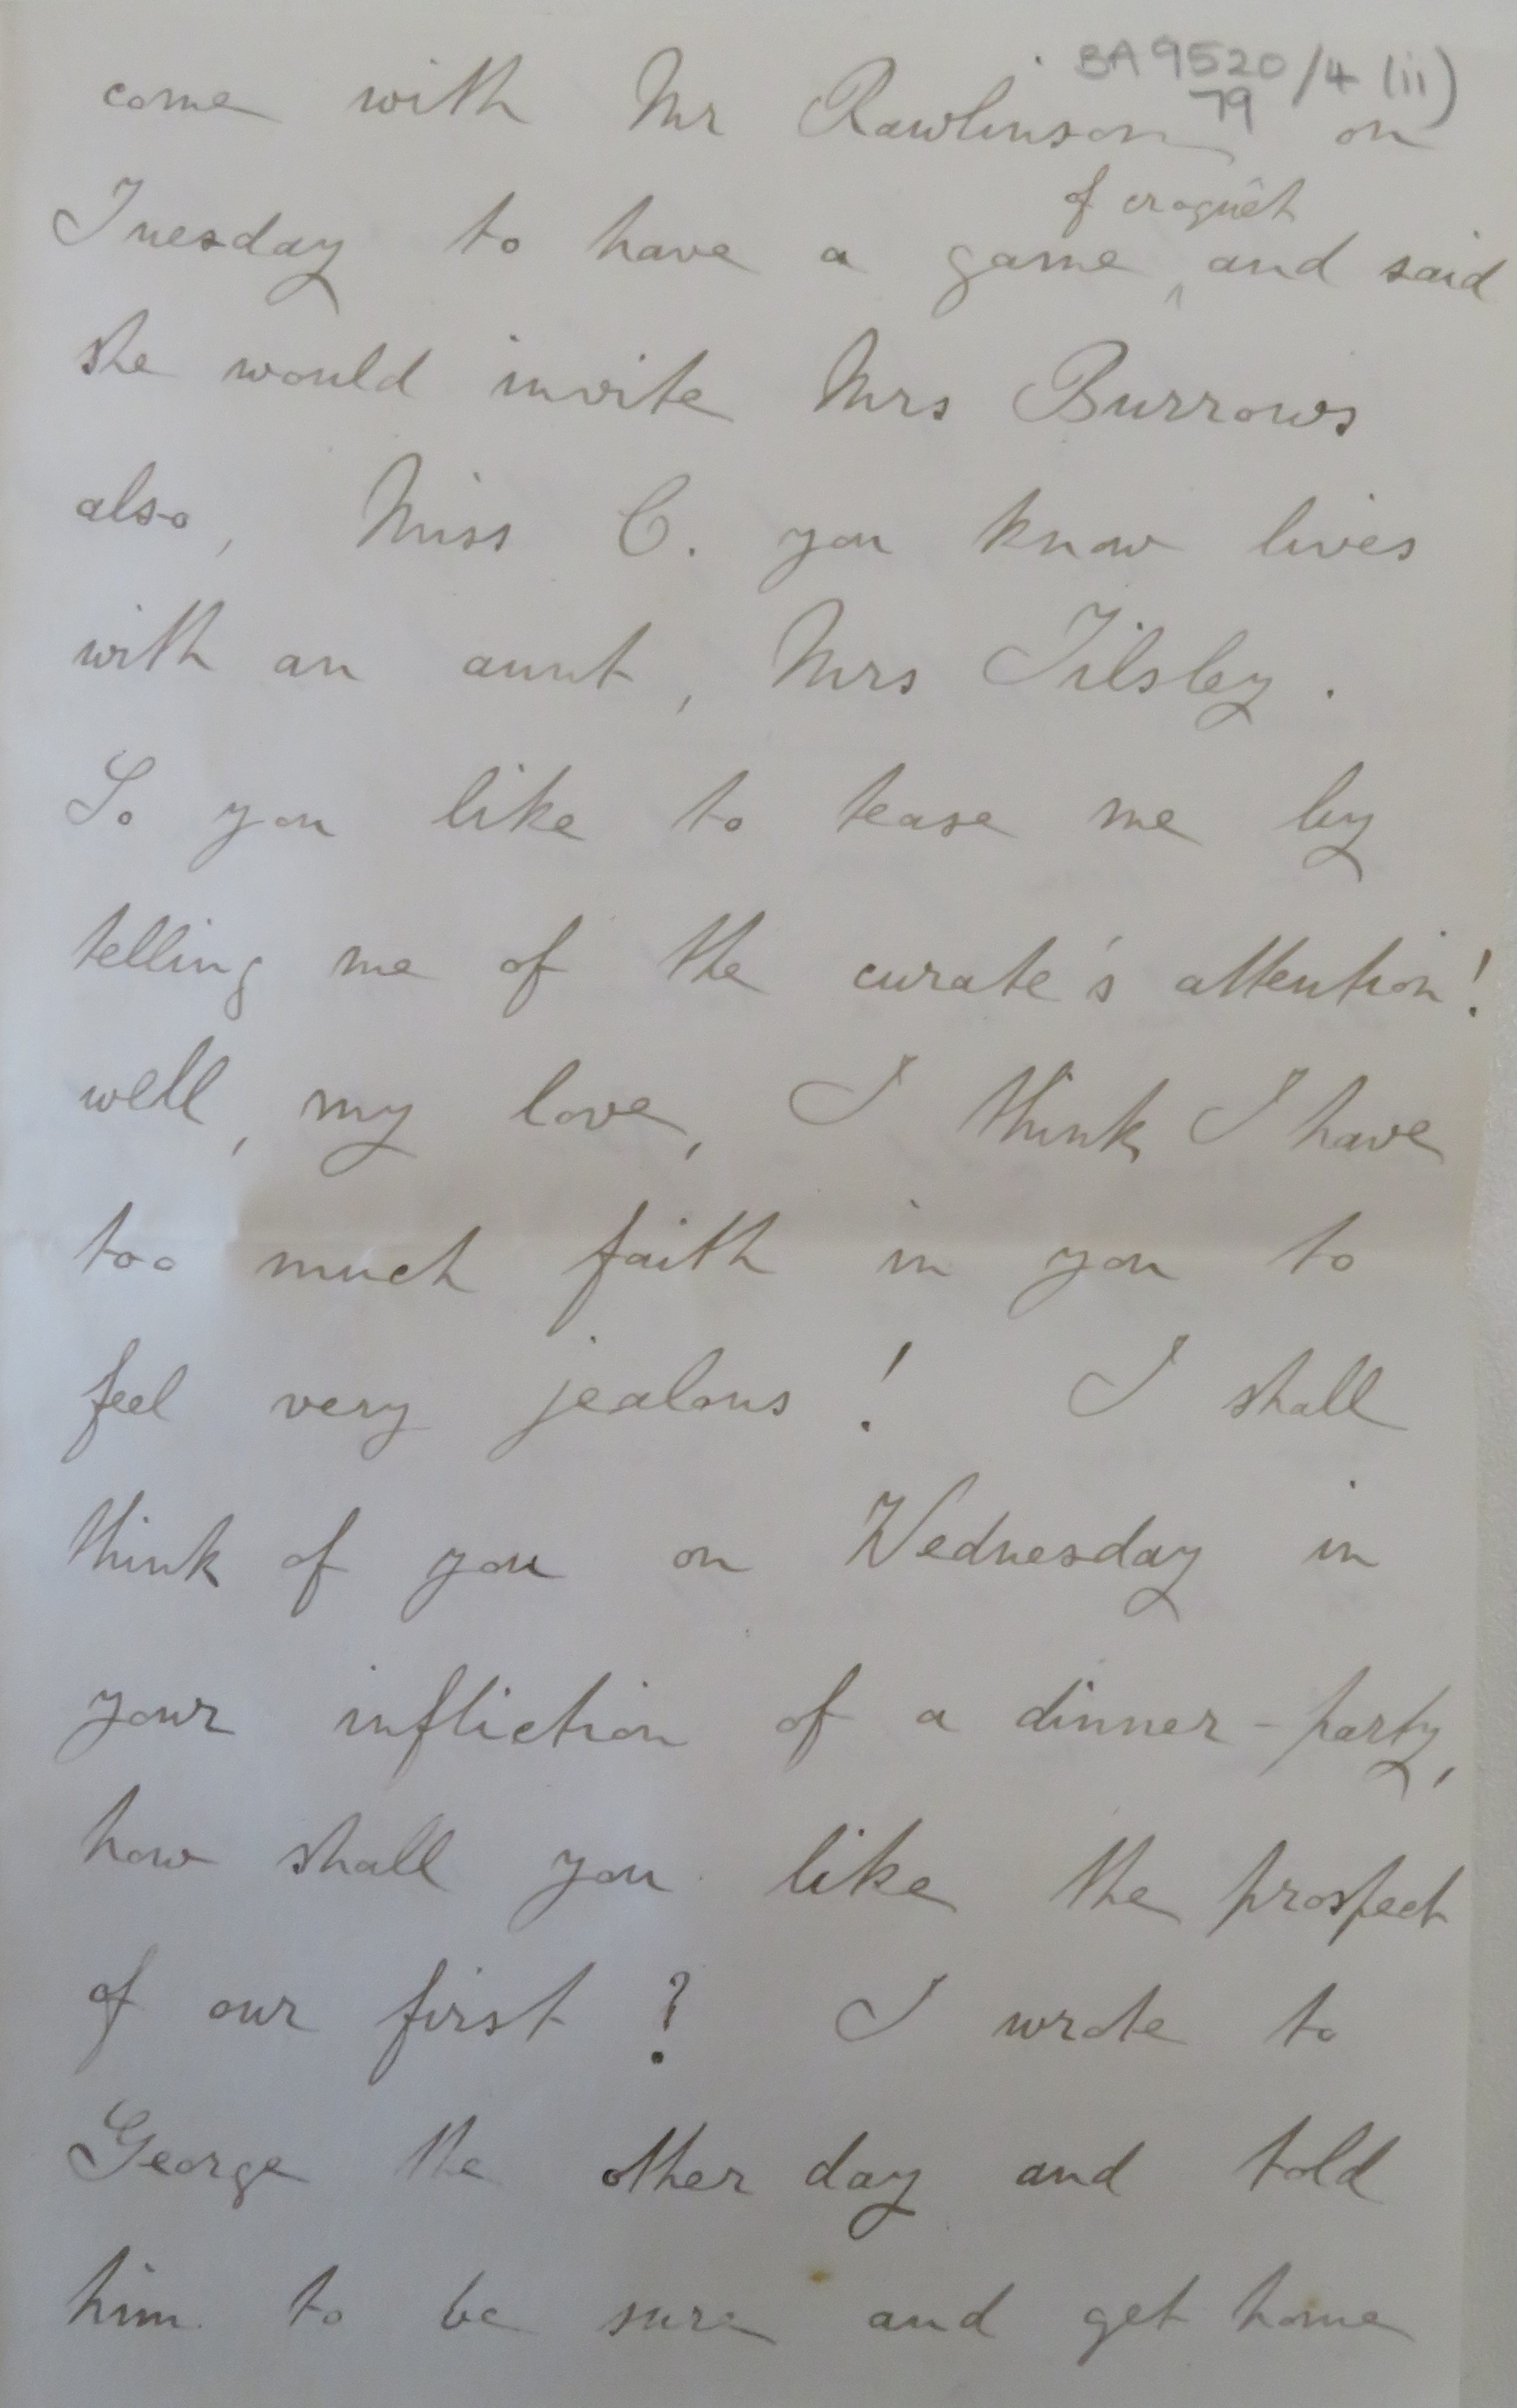 BA 9520/4 (ii)
79
come with Mr Rawlinson on
of croquêt
Tuesday to have a game ^ and said
she would invite Mrs Burrows
also, Miss C. you know lives
with an aunt, Mrs Tilsley.
So you like to tease me by
telling me of the curate's attention!
well, my love, I think I have
too much faith in you to
feel very jealous! I shall
think of you on Wednesday in
your infliction of a dinner-party,
how shall you like the prospect
of our first? I wrote to
George the other day and told
him to be sure and get home